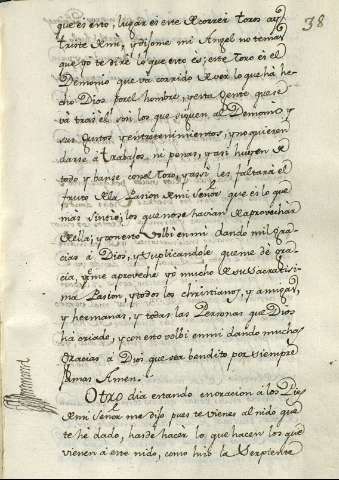 38
que es esto, lugar es este de correr toros ay
triste de mi, y dijome mi Angel no temas
que yo te diré lo que esto es; este toro es el
Demonio que va corrido de ver lo que ha he
cho Dios por el hombre, y esta gente que se
va tras el son los que siguen al Demonio y
sus gustos y entretenimientos, y no quieren
darse á trabajos, ni penas, y asi huyen de
todo y banse con el toro, y assi les faltará el
fruto de la Pasion de mi Señor que es lo que
mas sintio; los que no se havian de aprovechar
de ella; y con esto volbi en mi dando mil gra
cias á Dios, y suplicandole que me dé gra
cia, q̃ me aproveche yo mucho de su Sacratisi
ma Pasion, y todos los christianos, y amigas,
y hermanas, y todas las Personas que Dios
ha criado, y con esto volbi en mi dando muchas
gracias á Dios que sea bendito por siempre
jamas Amen.
Otro dia estando en oracion á los Pies
de mi Señor me dijo pues te vienes al nido que
te he dado, hasde hacer lo que hacen los que
vienen á este nido, como hizo la Serpiente